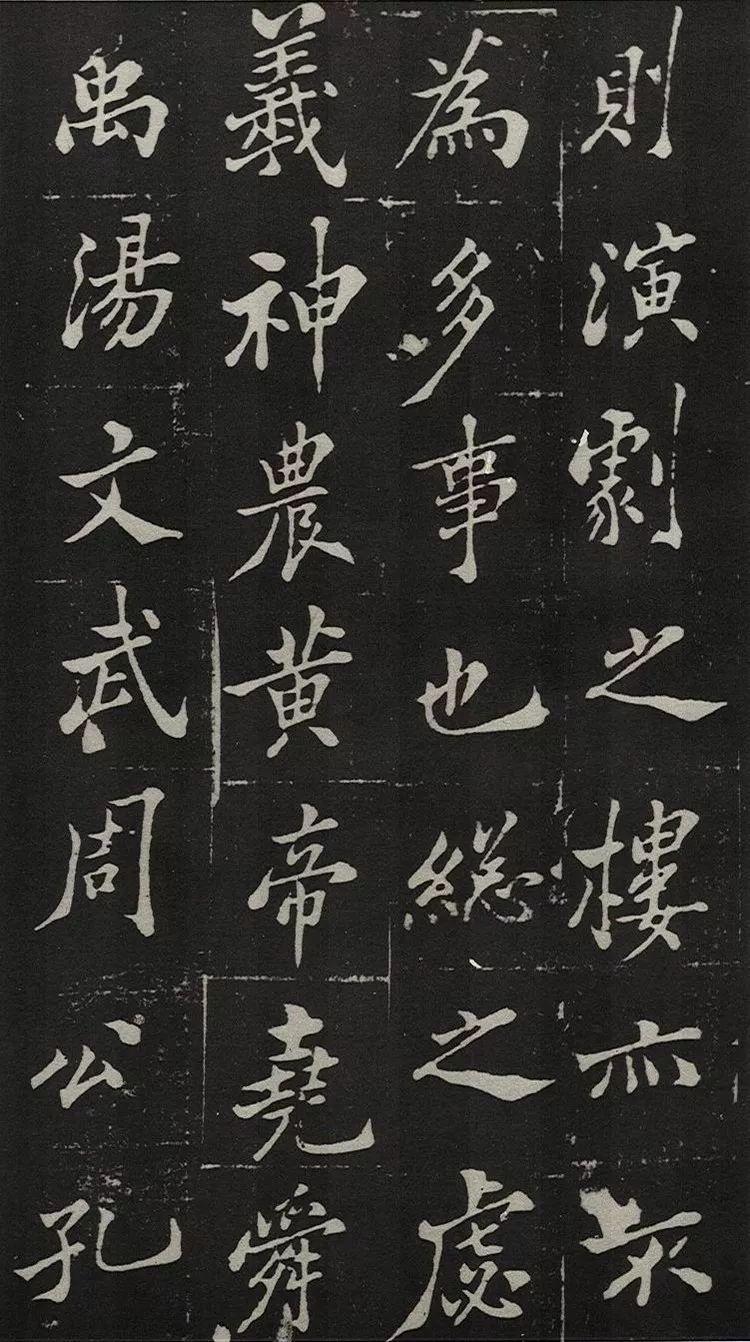 則演劇之樓亦不
為多事也総之虙
羲神農黄帝堯舜
禹湯文武周公孔